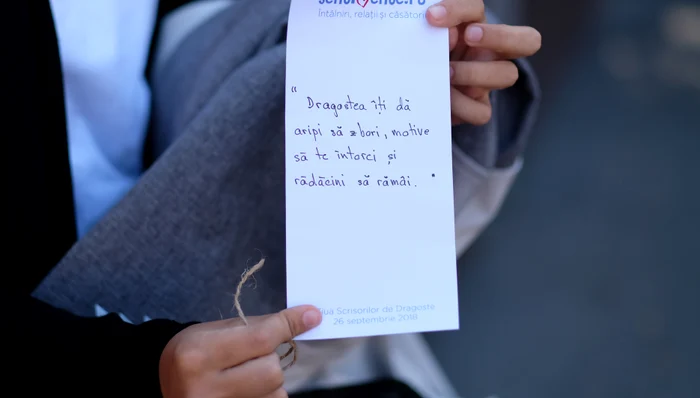 Întâlniri, relații și căsătorii
"
Dragostea îți dă
aripi să zbori, motive
să te întorci și
rădăcini să rămâi. "
Ziua Scrisorilor de Dragoste
26 septembrie 2018